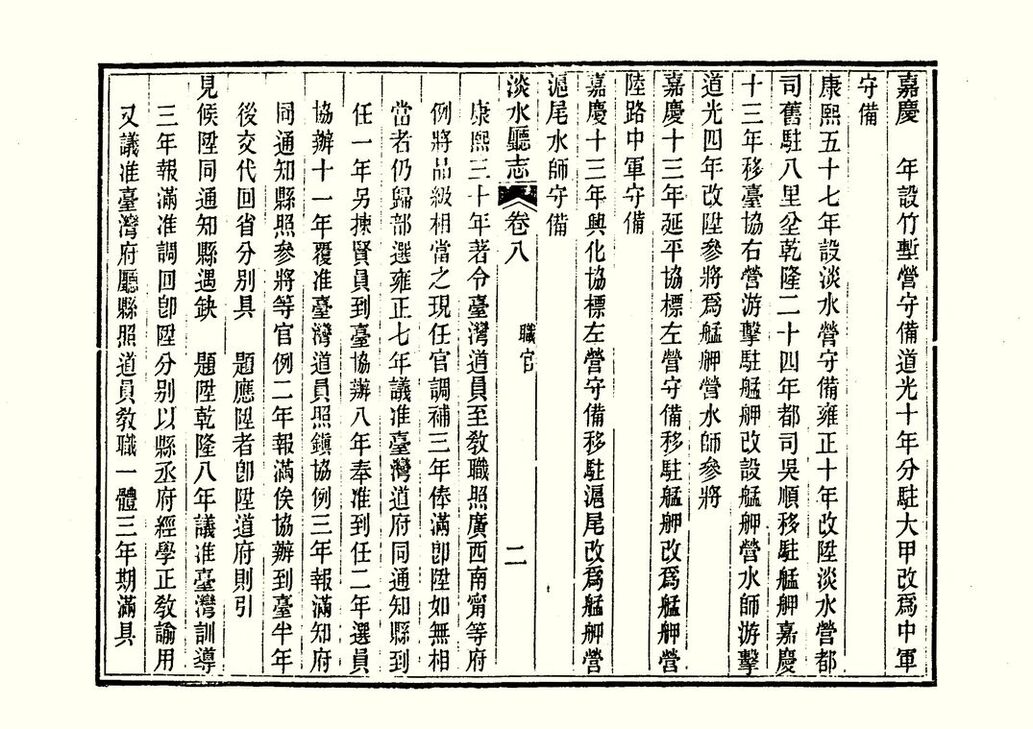 嘉慶　年設竹塹營守備道光十年分駐大甲改爲中軍
守備
康熙五十七年設淡水營守備雍正十年改陞淡水營都
司舊駐八里坌乾隆二十四年都司吳順移駐艋舺嘉慶
十三年移臺協右營游擊駐艋舺改設艋舺營水師游擊
道光四年改陞參將爲艋舺營水師參將
嘉慶十三年延平協標左營守備移駐艋舺改爲艋舺營
陸路中軍守備
嘉慶十三年興化協標左營守備移駐滬尾改爲艋舺營
滬尾水師守備
淡水廳志　卷八　職官　二
康熙三十年著令臺灣道員至敎職照廣西南甯等府
例將品級相當之現任官調補三年俸滿卽陞如無相
當者仍歸部選雍正七年議准臺灣道府同通知縣到
任一年另揀賢員到臺協辦八年奉准到任二年選員
協辦十一年覆准臺灣道員照鎮協例三年報滿知府
同通知縣照參將等官例二年報滿俟協辦到臺半年
後交代回省分別具　題應陞者卽陞道府則引
見候陞同通知縣遇缺　題陞乾隆八年議准臺灣訓導
三年報滿准調回卽陞分別以縣丞府經學正敎諭用
又議准臺灣府廳縣照道員敎職一體三年期滿具